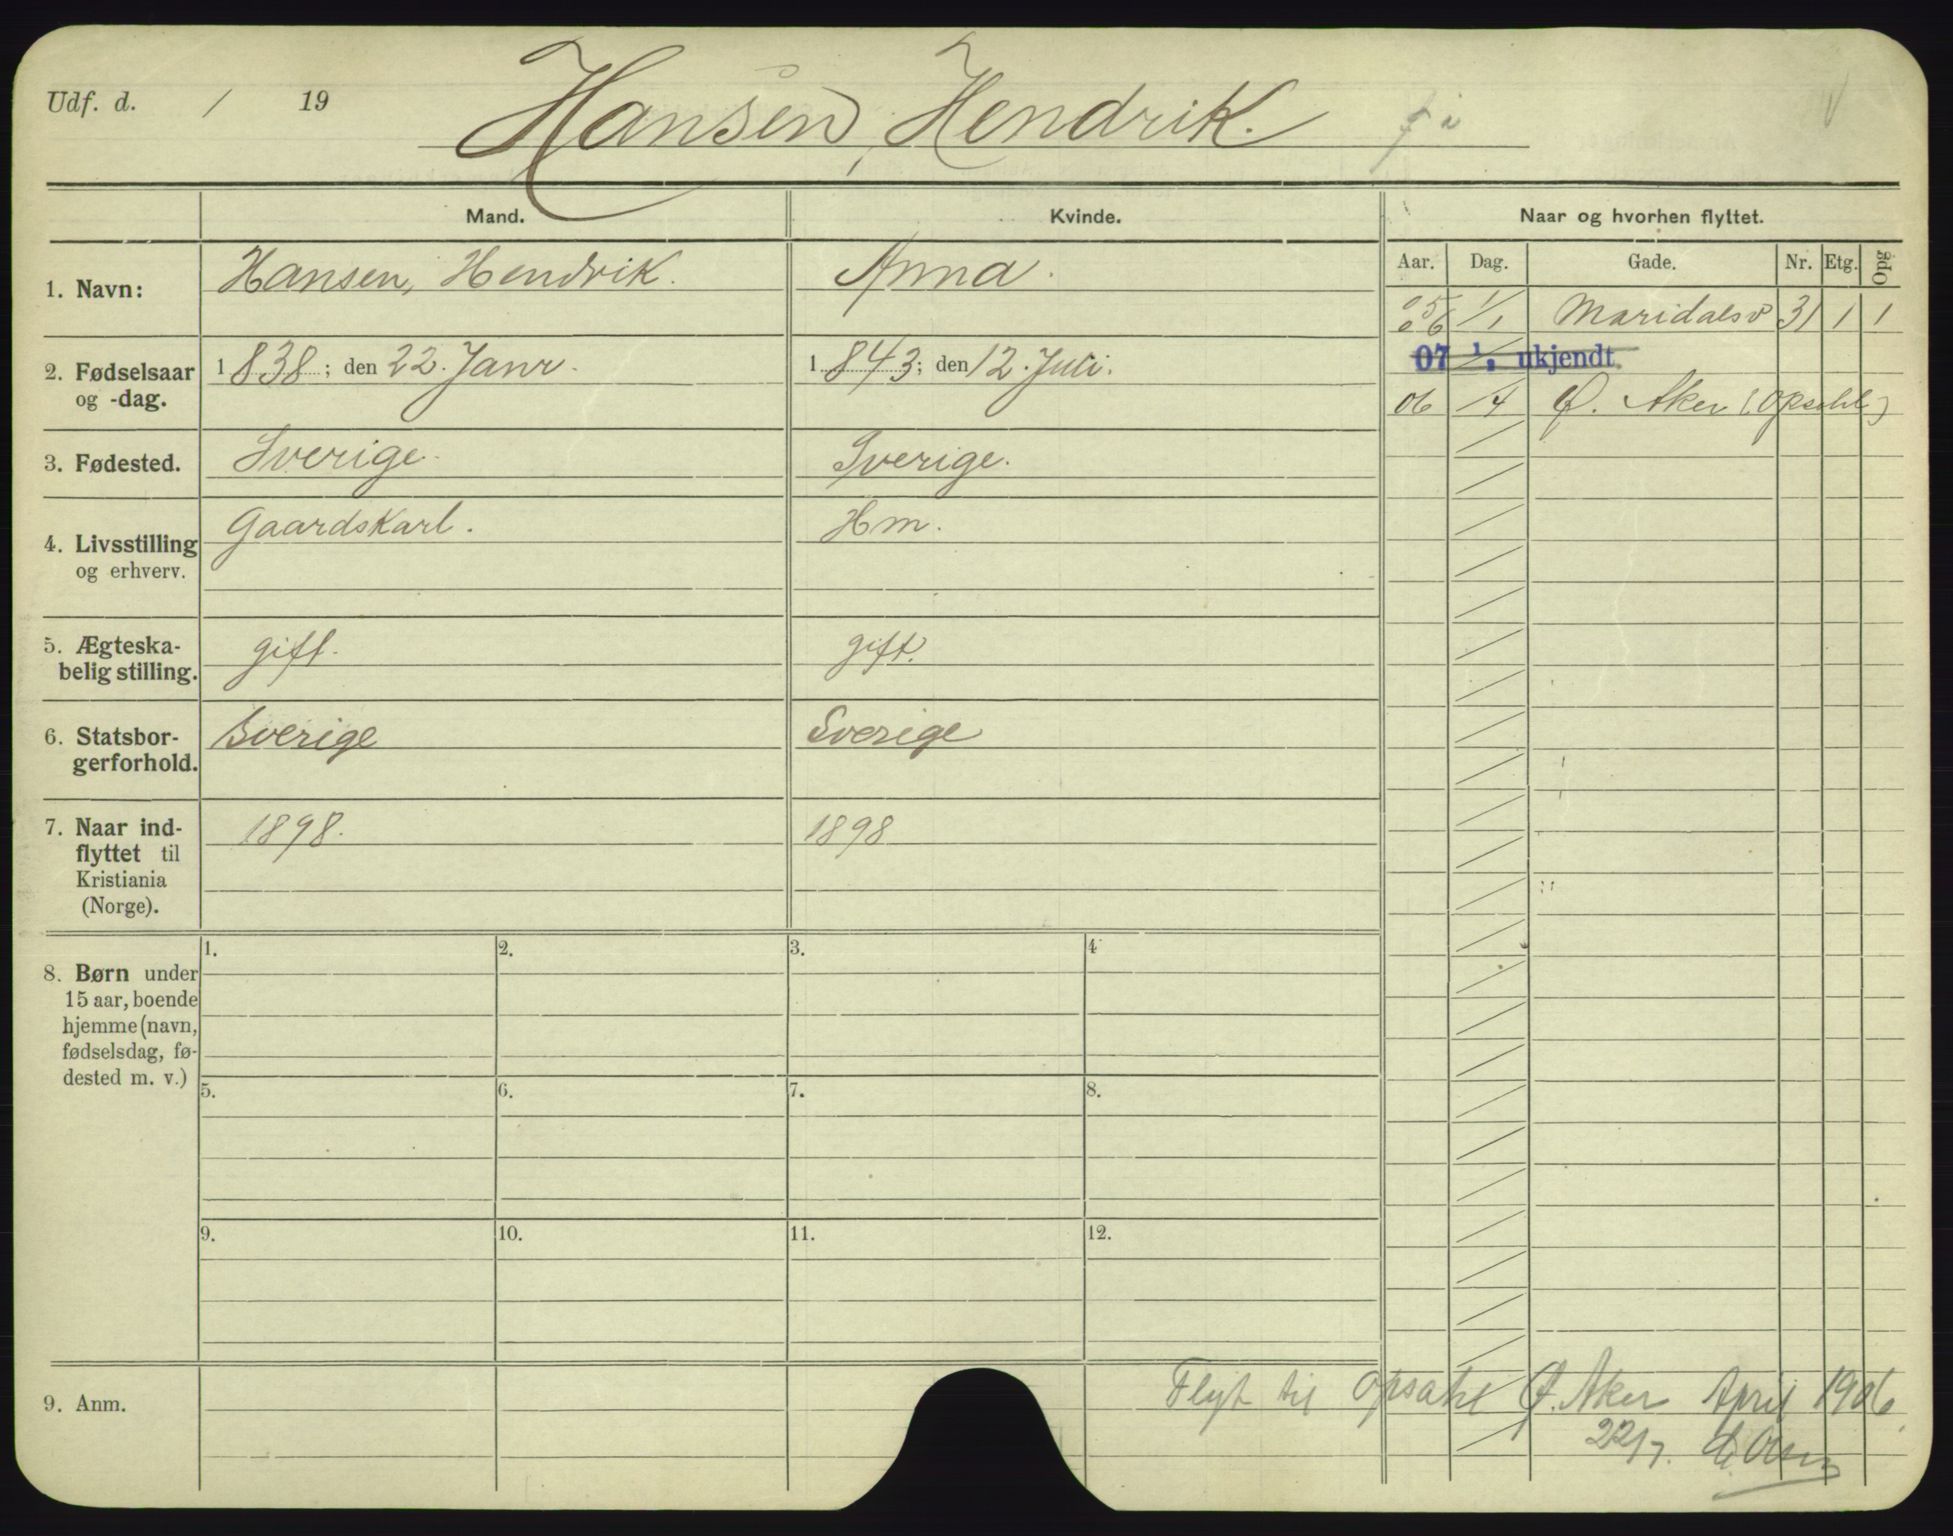 Udf. d. / 19
Hansen, Hendrik.
Mand. Kvinde. Naar og hvorhen flyttet.
Aar. Dag. Gade. Nr. Etg. Opg
1. Navn: Hansen, Hendrik. Anna.
05 06 1/1 Maridalsv 31 1 1
07 1/1 ukjendt
06 /4 Ø. Aker (Opsahl)
2. Fødselsaar
og -dag.
1838; den 22. Janr. 1843; den 12. Juli.
3. Fødested. Sverige. Sverige.
4. Livsstilling
og erhverv.
Gaardskarl. Hm.
5. Ægteska-
belig stilling.
gift. gift.
6. Statsbor-
gerforhold.
Sverige Sverige
7. Naar ind-
flyttet til
Kristiania
(Norge).
1898. 1898
8. Børn under
15 aar, boende
hjemme (navn,
fødselsdag, fø-
dested m. v.)
1. 2. 3. 4
5. 6. 7. 8.
9. 10. 11. 12.
9. Anm.
Flyt til Opsahl Ø. Aker April 1906.
22/7.